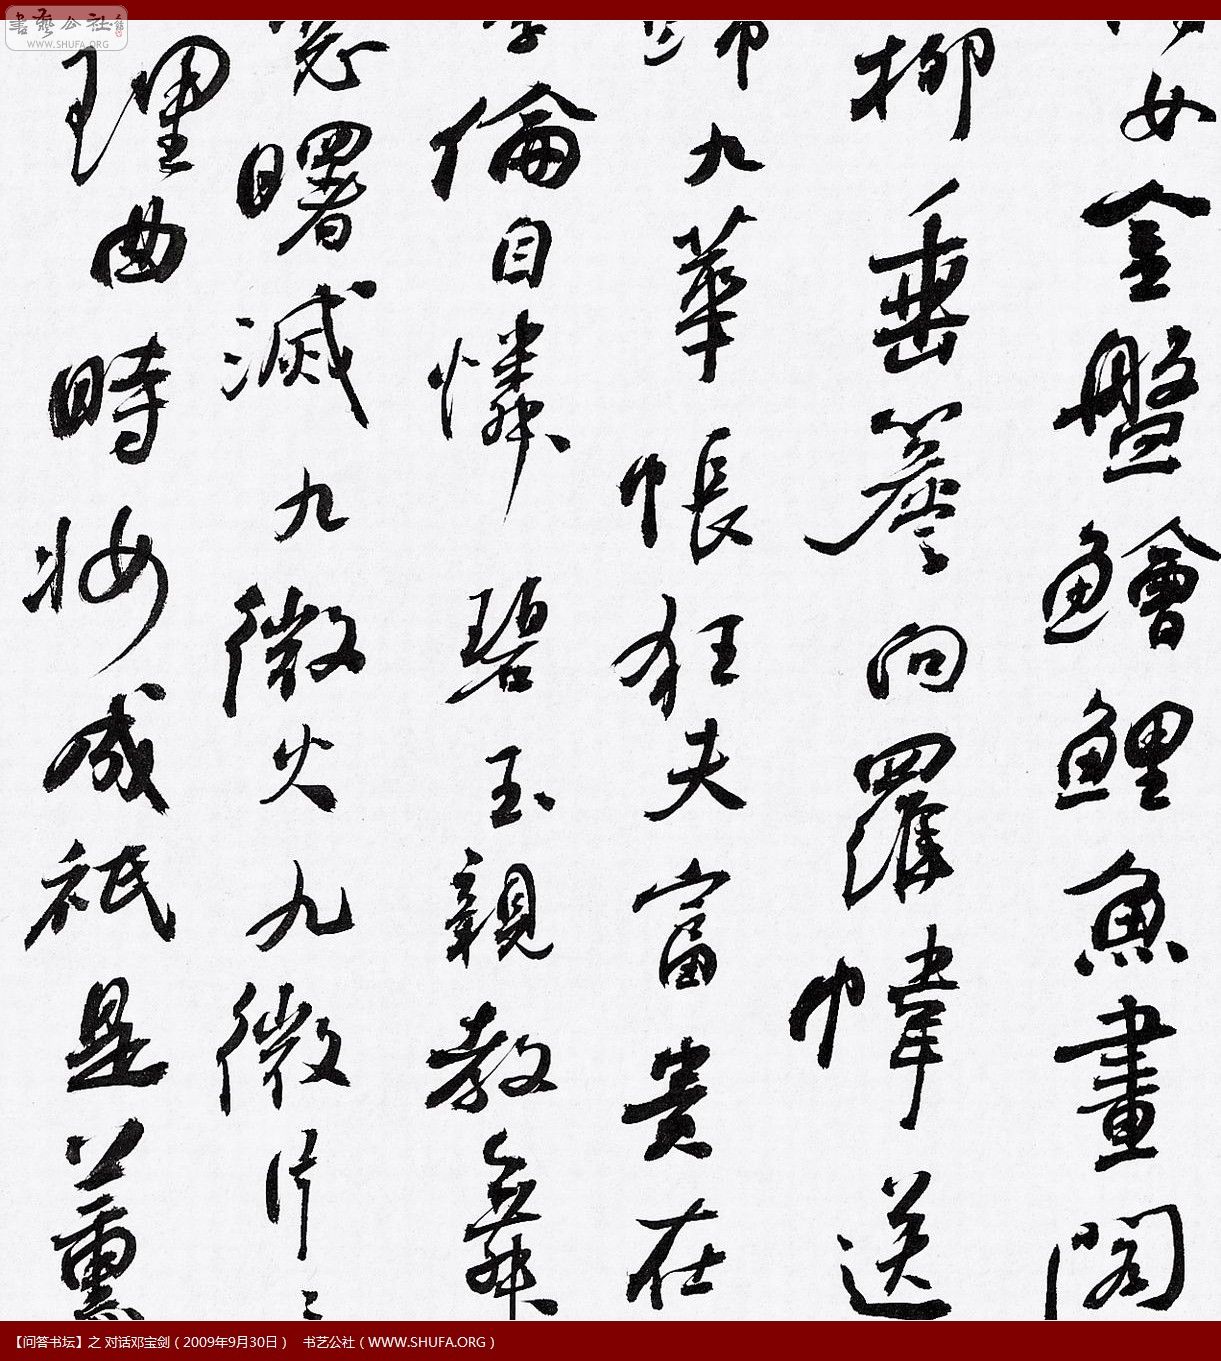 書藝公社
WWW.SHUFA.ORG
女金盤鱠鯉魚畫閣
柳垂簷向羅幃送
歸九華帳狂夫富貴在
季倫自憐碧玉親教舞
窓曙滅九微火九微片
理曲時妝成祇是薰
【问答书坛】之 对话邓宝剑(2009年9月30日) 书艺公社(WWW.SHUFA.ORG)